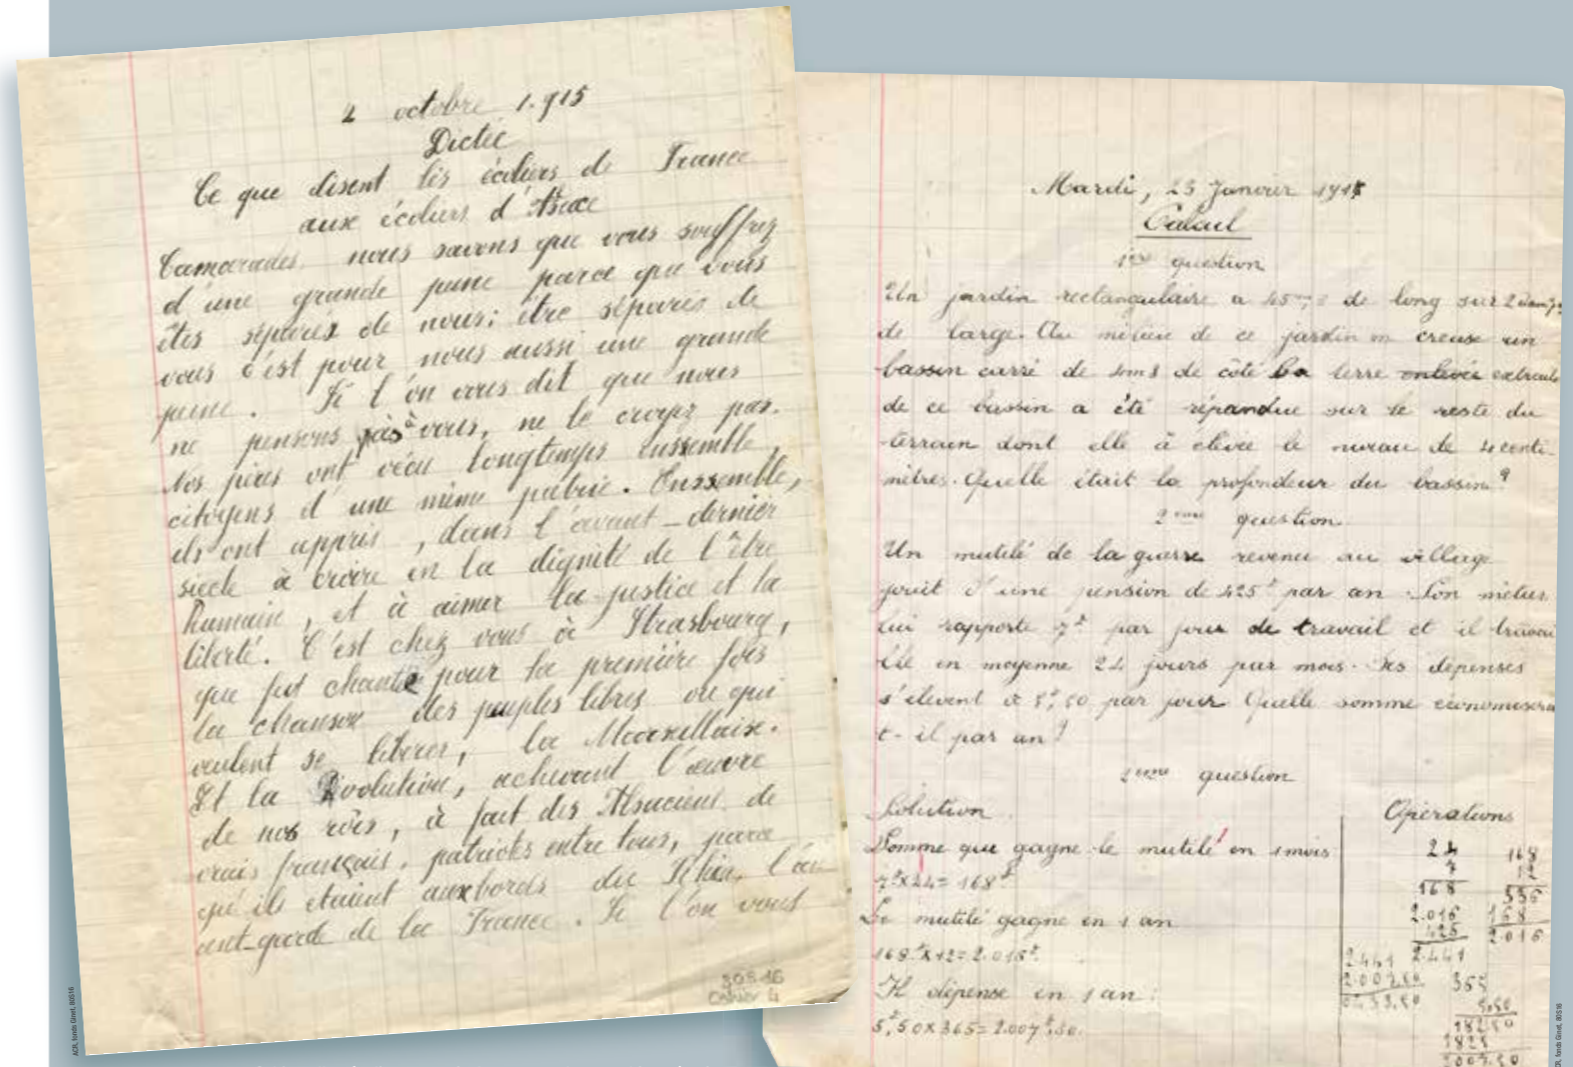 2 octobre 1.915
Dictée
Ce que disent les écoliers de France
aux écoliers d'Alsace
Camarades nous savons que vous souffrez
d'une grande peine parce que vous
êtes séparés de nous; être séparés de
vous c'est pour nous aussi une grande
peine. Si l'on vous dit que nous
ne pensons pas à vous, ne le croyez pas.
Nos pères ont vécu longtemps enssemble,
citoyens d'une même patrie. Enssemble,
ils ont appris, dans l'avant-dernier
siècle à croire en la dignité de l'être
humain, et à aimer la justice et la
liberté. C'est chez vous à Strasbourg,
que fut chantée pour la première fois
la chanson des peuples libres ou qui
veulent se libérer, la Marseillaise.
Et la Révolution, achevant l'œuvre
de nos rois, à fait des Alsaciens de
vrais français, patriotes entre tous, parce
qu'ils étaient aux bords du Rhin, l'av
ant-garde de la France. Si l'on vous
80S16
Cahier 4
ACR, fonds Ginet, 80S16
Mardi, 23 Janvier
Calcul
1ère question
Un jardin rectangulaire a de long sur
de large. Au milieu de ce jardin on creuse un
bassin carré de de côté La terre enlevée extraite
de ce bassin a été répandue sur le reste du
terrain dont elle à élevée le niveau de 4 centi-
mètres. Quelle était la profondeur du bassin?
2ème question
Un mutilé de la guerre revenu au village
jouit d'une pension de 425f par an. Son métier
lui rapporte 7f par jour de travail et il travai
lle en moyenne 24 jours par mois. Ses dépenses
s'élèvent à 5f,50 par jour Quelle somme économisera
t-il par an?
2ème question
Solution
Opérations
Somme que gagne le mutilé en 1 mois
7f x 24 = 168f
Le mutilé gagne en 1 an
168f x 12 = 2.016f
Il dépense en 1 an:
5f,50 x 365 = 2.007f,50
24
7
168
2.016
425
2.441
168
12
336
168
2.016
2.441
2.007.50
365
5.50
18250
1825
2007.50
ACR, fonds Ginet, 80S16